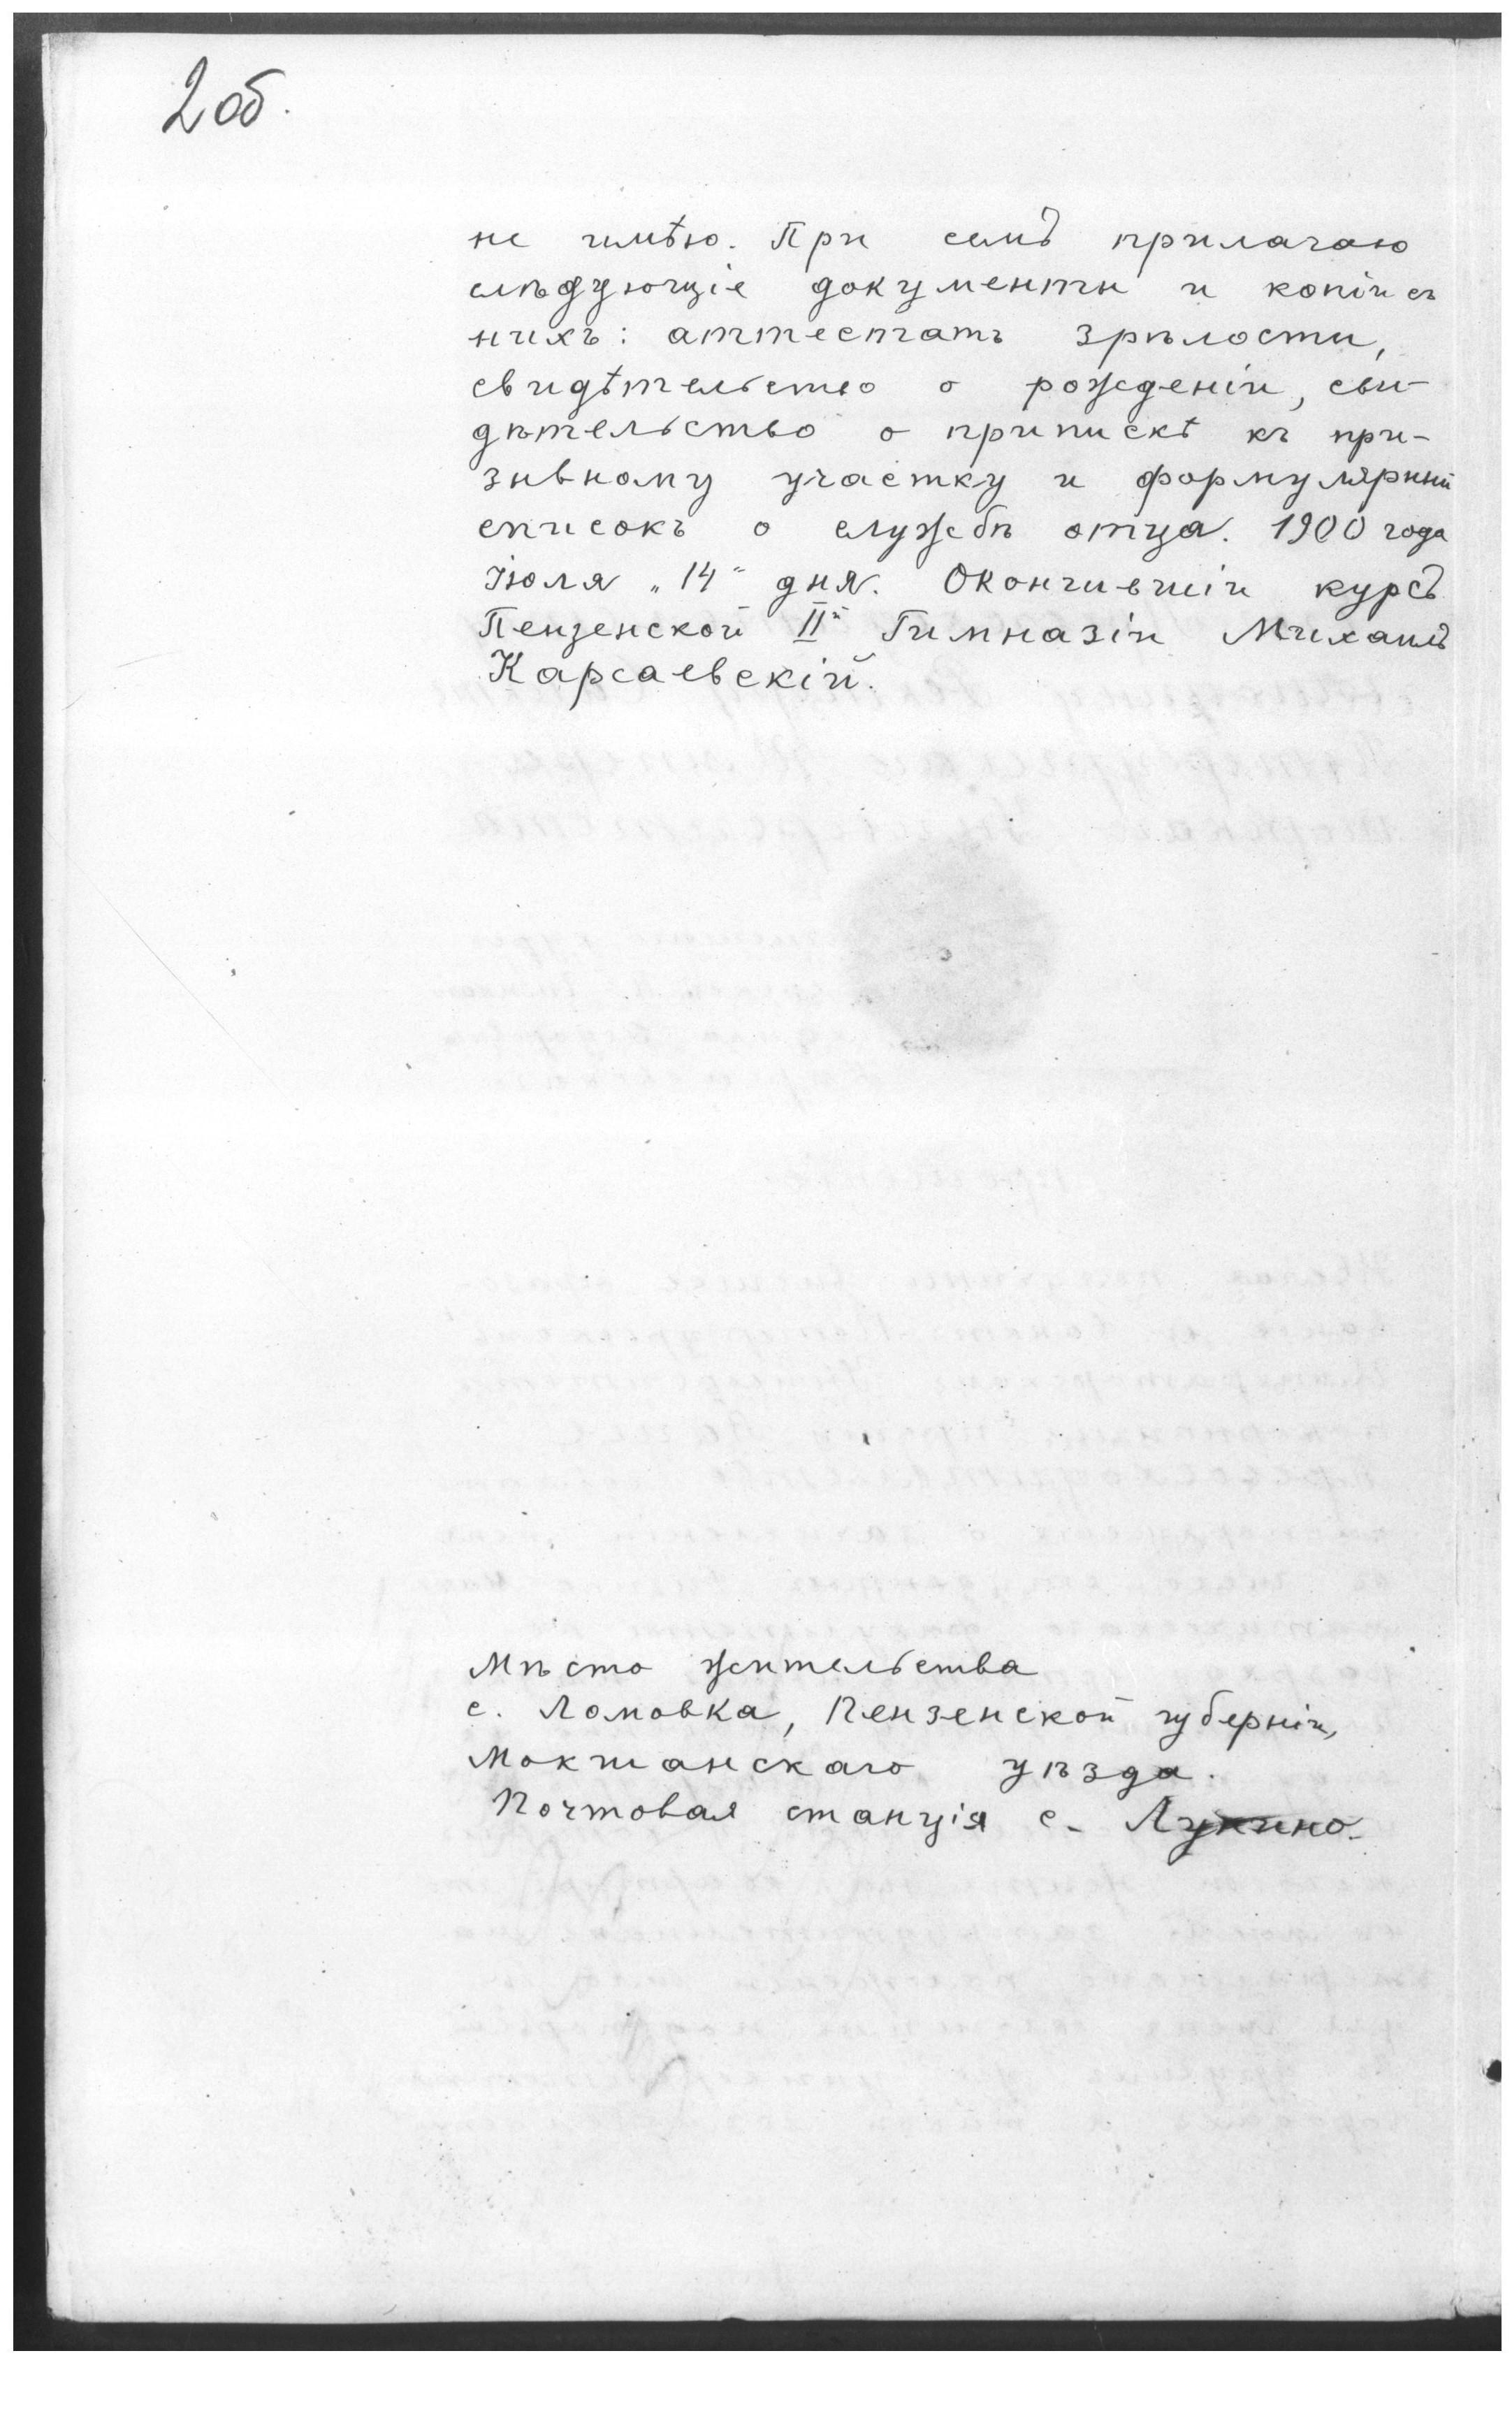 2 об.
не имѣю. При семъ прилагаю
слѣдующіе документы и копіи съ
нихъ: аттестатъ зрѣлости,
свидѣтельство о рожденіи, сви-
дѣтельство о припискѣ къ при-
зывному участку и формулярный
списокъ о службѣ отца. 1900 года
Іюля „14" дня. Окончившій курсъ
Пензенской IIй Гимназіи Михаилъ
Карсаевскій.
Мѣсто жительства
с. Ломовка, Пензенской губерніи,
Мокшанскаго уѣзда.
Почтовая станція с. Лукино.